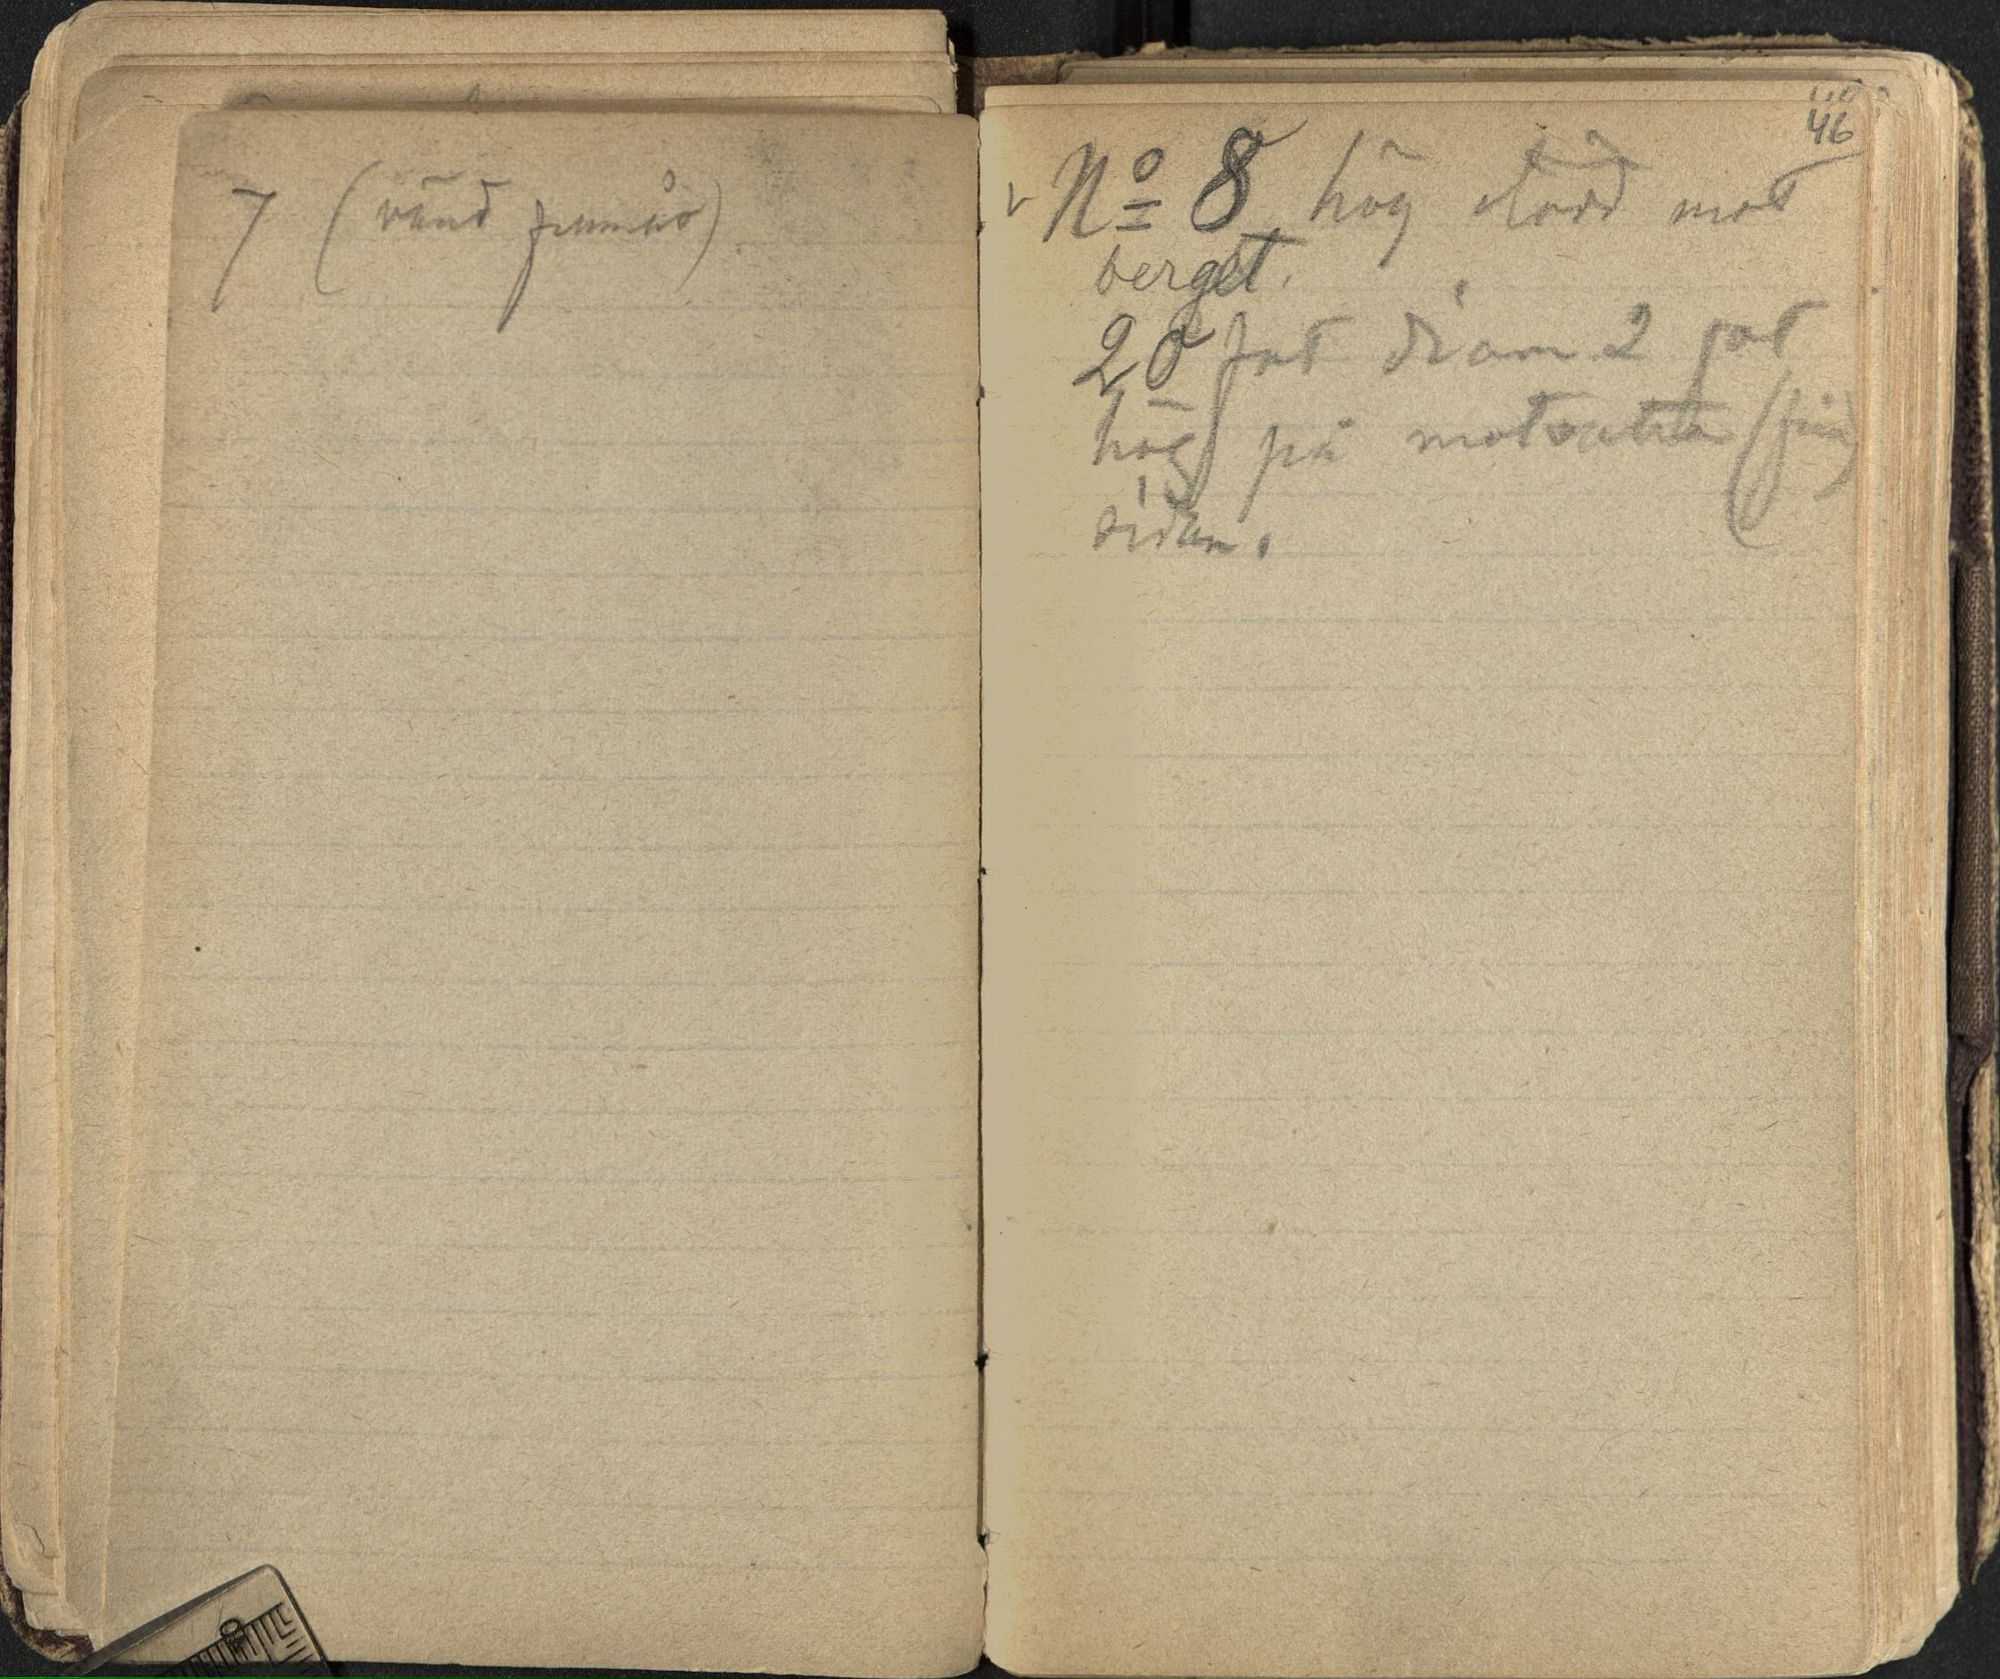 7 (vänd
46
v Nº 8 hög stödd mot
berget.
20 fot diam 2 fot
hög på motsatta (fria)
sidan.